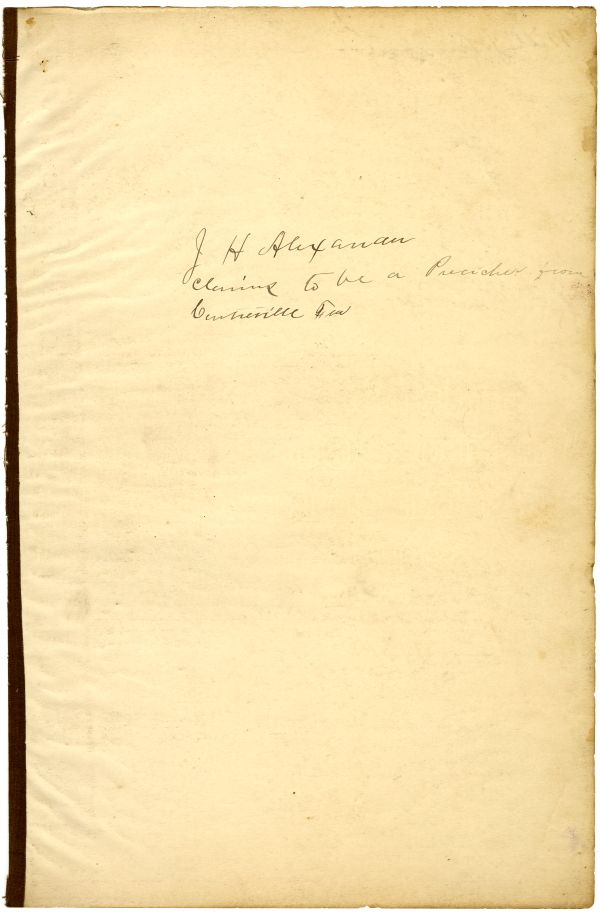 J H Alexander
Claming to be a Preicher from
Centreville Ten